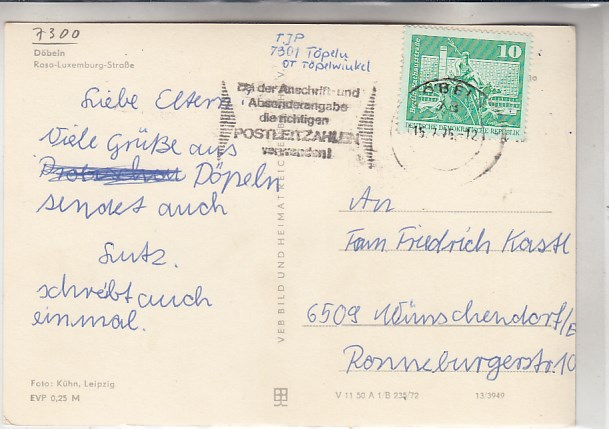 7300
Döbeln
Rosa-Luxemburg-Straße
TJP
7301 Töpeln
OT Töpelwinkel
Bei der Anschrift- und
Absenderangabe
die richtigen
POSTLEITZAHLEN
verwenden!
10
DEUTSCHE DEMOKRATISCHE REPUBLIK
Liebe Eltern
Viele Grüße aus
Döpeln
sendet auch
Lutz.
schreibt auch
einmal.
An
Fam Friedrich Kastl
6509 Wünschendorf/E
Ronneburgerstr. 10
VEB BILD UND HEIMAT REICHENBACH
Foto: Kühn, Leipzig
EVP 0,25 M
V 11 50 A 1/B 235/72
13/3949